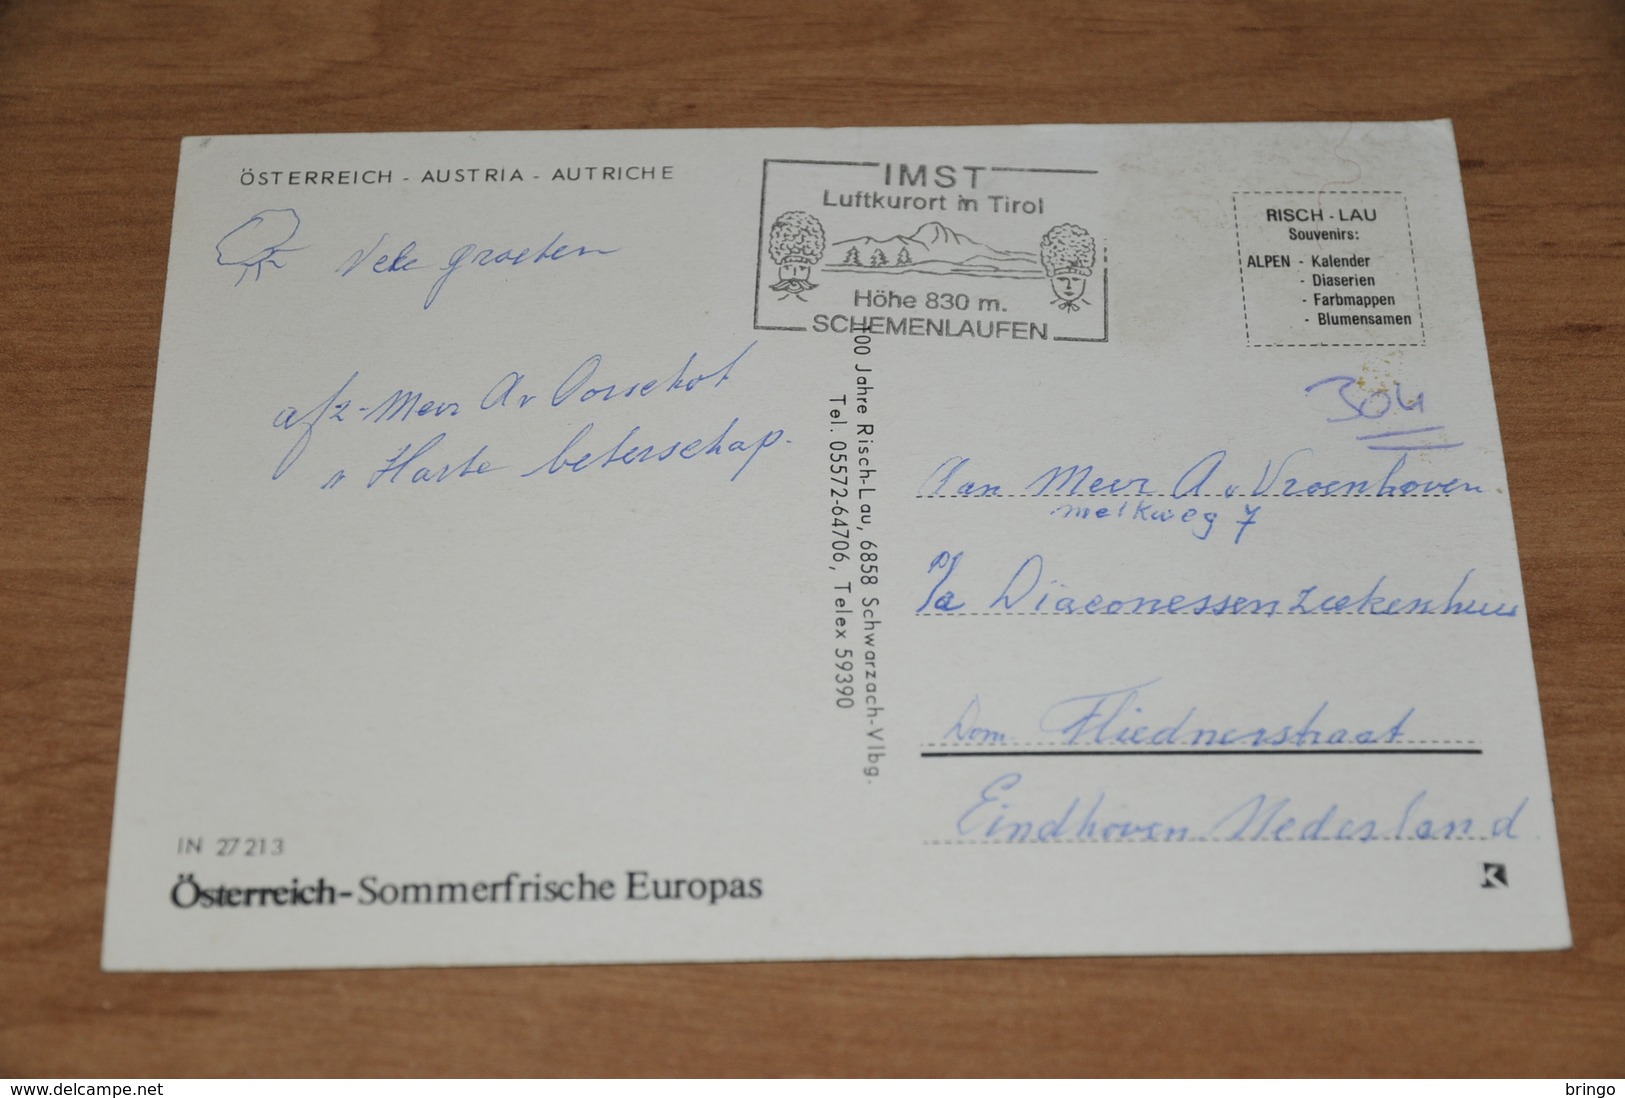 ÖSTERREICH - AUSTRIA - AUTRICHE
Vele groeten
afz - Meur A v Oorschot
n Harte beterschap.
IN 27213
Österreich - Sommerfrische Europas
IMST
Luftkurort in Tirol
Höhe 830 m.
SCHEMENLAUFEN
100 Jahre Risch-Lau, 6858 Schwarzach-Vlbg.
Tel. 05572-64706, Telex 59390
RISCH - LAU
Souvenirs:
ALPEN - Kalender
- Diaserien
- Farbmappen
- Blumensamen
304
Aan Meur A v Vroenhoven
melkweg 7
p/a Diaconessenziekenhuis
Dom Fliednerstraat
Eindhoven Nederland
K
delcampe.net
bringo